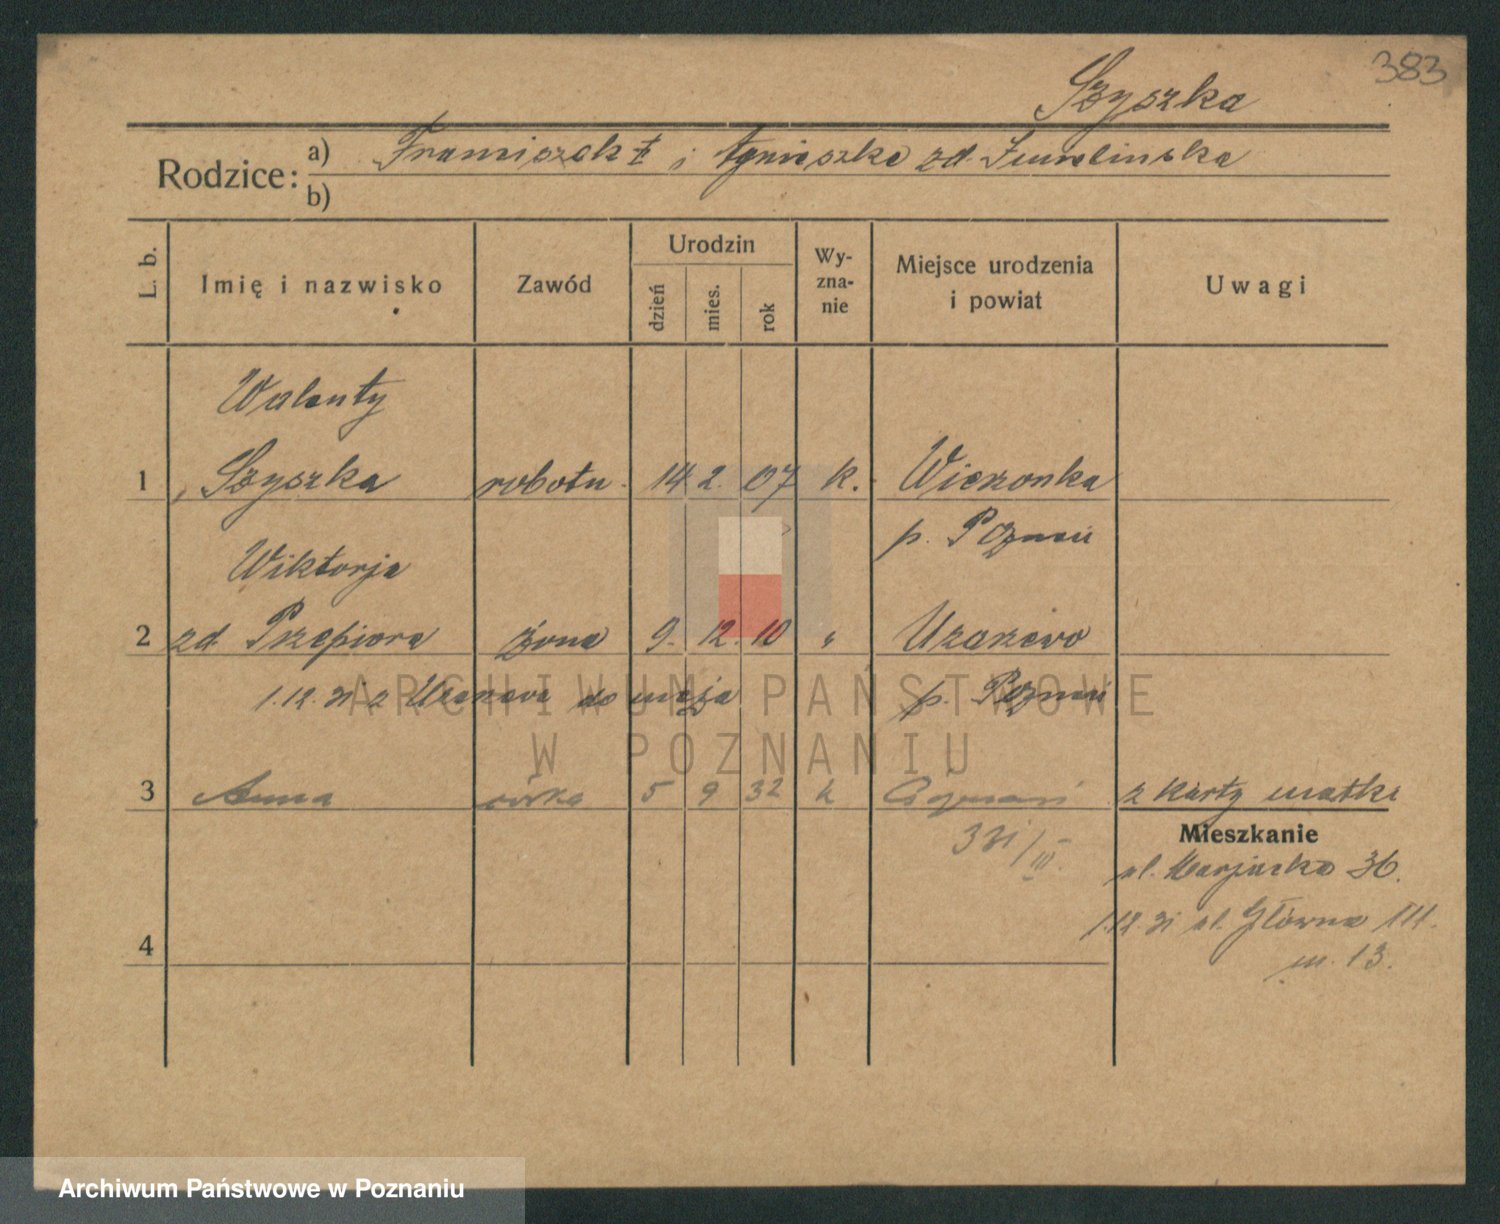 383
Szyszka
Rodzice: a) Franciszek ‡ i Agnieszka zd.
b)
L. b. Imię i nazwisko Zawód Urodzin dzień mies. rok Wyznanie Miejsce urodzenia i powiat Uwagi
Walenty
1 Szyszka robotn. 14 2. 07 k. Wierzonka
p. Poznań
Wiktorja
2 zd. Przepiora żona 9. 12. 10 " Uzarzewo
1.12.31 z Uzarzewa do męża p. Poznań
3 Anna córka 5 9 32 k Poznań z karty matki
331/III.
Mieszkanie
ul. Marjacka 36.
1.12.31 ul. Główna 111.
m. 13.
4
ARCHIWUM PAŃSTWOWE
W POZNANIU
Archiwum Państwowe w Poznaniu